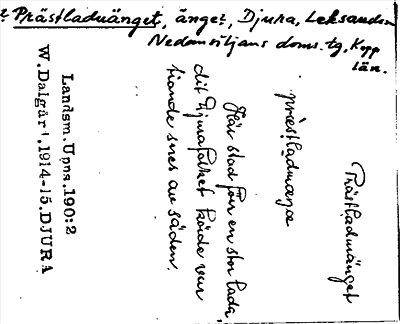 Prästladuänget, änget, Djura, Leksands
Nedansiljans doms. tg, Kopp
län.
Prästladuänget
præstladuæŋə
Här stod förr en stor lada,
dit Djurafolket körde vur
tionde snes av säden.
Landsm. Upps. 190:2
W. Dalgård. 1914-15. DJURA